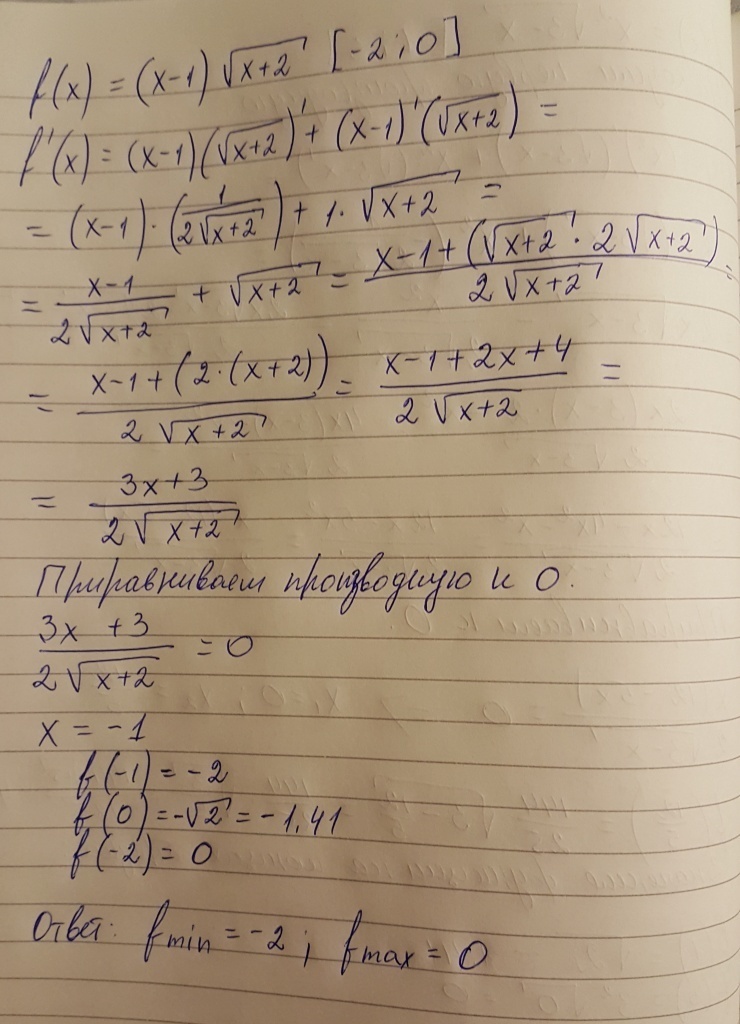 f(x) = (x-1) √(x+2) [-2 ; 0]
f'(x) = (x-1)(√(x+2))' + (x-1)'(√(x+2)) =
= (x-1)·(1/(2√(x+2))) + 1·√(x+2) =
= (x-1)/(2√(x+2)) + √(x+2) = (x-1+(√(x+2) · 2√(x+2)))/(2√(x+2)) =
= (x-1+(2·(x+2)))/(2√(x+2)) = (x-1+2x+4)/(2√(x+2)) =
= (3x+3)/(2√(x+2))
Приравниваем производную к 0.
(3x +3)/(2√(x+2)) = 0
x = -1
f(-1) = -2
f(0) = -√2 = -1,41
f(-2) = 0
Ответ: fmin = -2 ; fmax = 0